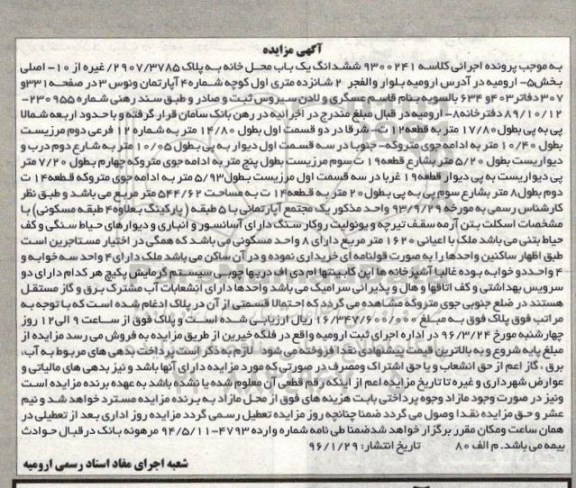 آگهی مزایده
به موجب پرونده اجرائی کلاسه 9300241 ششدانگ یک باب محل خانه به پلاک 2907/3785/ غیره از 10- اصلی
بخش 5- ارومیه در آدرس ارومیه بلوار والفجر 2 شانزده متری اول کوچه شماره 4 آپارتمان ونوس 3 در صفحه 331 و
307 دفاتر 403 و 634 بالسویه بنام قاسم عسگری و لادن سیروس ثبت و صادر و طبق سند رهنی شماره 230955-
89/10/12 دفترخانه 8- ارومیه در قبال مبلغ مندرج در اجرائیه در رهن بانک سامان قرار گرفته و با حدود اربعه شمالا
پی به پی بطول 17/80 متر به قطعه 12 ت شرقا در دو قسمت اول بطول 14/80 متر به شماره 12 فرعی دوم مرزیست
بطول 10/40 متر به ادامه جوی متروکه- جنوبا در سه قسمت اول دیوار به پی بطول 10/05 متر به شارع دوم درب و
دیواریست بطول 5/20 متر بشارع قطعه 19 ت سوم مرزیست بطول پنج متر به ادامه جوی متروکه چهارم بطول 7/20 متر
پی دیواریست به پی دیوار قطعه 19 غربا در سه قسمت اول مرزیست بطول 5/93 متر به ادامه جوی متروکه قطعه 14 ت
دوم بطول 8 متر بشارع سوم پی به پی بطول 20 متر به قطعه 14 ت به مساحت 544/62 متر مربع می باشد و طبق نظر
کارشناس رسمی به مورخه 93/9/29 واحد مذکور یک مجتمع آپارتمانی با 5 طبقه (پارکینگ بعلاوه 4 طبقه مسکونی) با
مشخصات اسکلت بتن آرمه سقف تیرچه و یونولیت روکار سنگ دارای آسانسور و انباری و دیوارهای حیاط سنگی و کف
حیاط بتنی می باشد ملک با اعیانی 1620 متر مربع دارای 8 واحد مسکونی می باشد که همگی در اختیار مستاجرین است
طبق اظهار ساکنین واحدها را به صورت قولنامه ای خریداری نموده و در آن ساکن می باشد ملک دارای 4 واحد سه خوابه و
4 واحد دو خوابه بوده غالبا آشپزخانه ها اپن کابینتها ام دی اف دربها چوبی سیستم گرمایش پکیج هر کدام دارای دو
سرویس بهداشتی و کف اتاقها و هال و پذیرائی سرامیک می باشد واحدها دارای انشعابات آب مشترک برق و گاز مستقل
هستند در ضلع جنوبی جوی متروکه مشاهده می گردد که احتمالا قسمتی از آن در پلاک ادغام شده است که با توجه به
مراتب فوق پلاک فوق به مبلغ 16/347/600/000 ریال ارزیابی شده است و پلاک فوق از ساعت 9 الی 12 روز
چهارشنبه مورخ 96/3/24 در اداره اجرای ثبت ارومیه واقع در فلکه خیرین از طریق مزایده به فروش می رسد مزایده از
مبلغ پایه شروع و به بالاترین قیمت پیشنهادی نقدا فروخته می شود لازم به ذکر است پرداخت بدهی های مربوط به آب،
برق، گاز اعم از حق انشعاب و یا حق اشتراک و مصرف در صورتی که مورد مزایده دارای آنها باشد و نیز بدهی های مالیاتی و
عوارض شهرداری و غیره تا تاریخ مزایده اعم از اینکه رقم قطعی آن معلوم شده یا نشده باشد به عهده برنده مزایده است
ونیز در صورت وجود مازاد وجوه پرداختی بابت هزینه های فوق از محل مازاد به برنده مزایده مسترد خواهد شد و نیم
عشر و حق مزایده نقدا وصول می گردد ضمنا چنانچه روز مزایده تعطیل رسمی گردد مزایده روز اداری بعد از تعطیلی در
همان ساعت و مکان مقرر برگزار خواهد شد ضمنا طی نامه شماره وارده 4793-94/5/11 مرهونه بانک در قبال حوادث
بیمه می باشد. م الف 80 تاریخ انتشار: 96/1/29
شعبه اجرای مفاد اسناد رسمی ارومیه